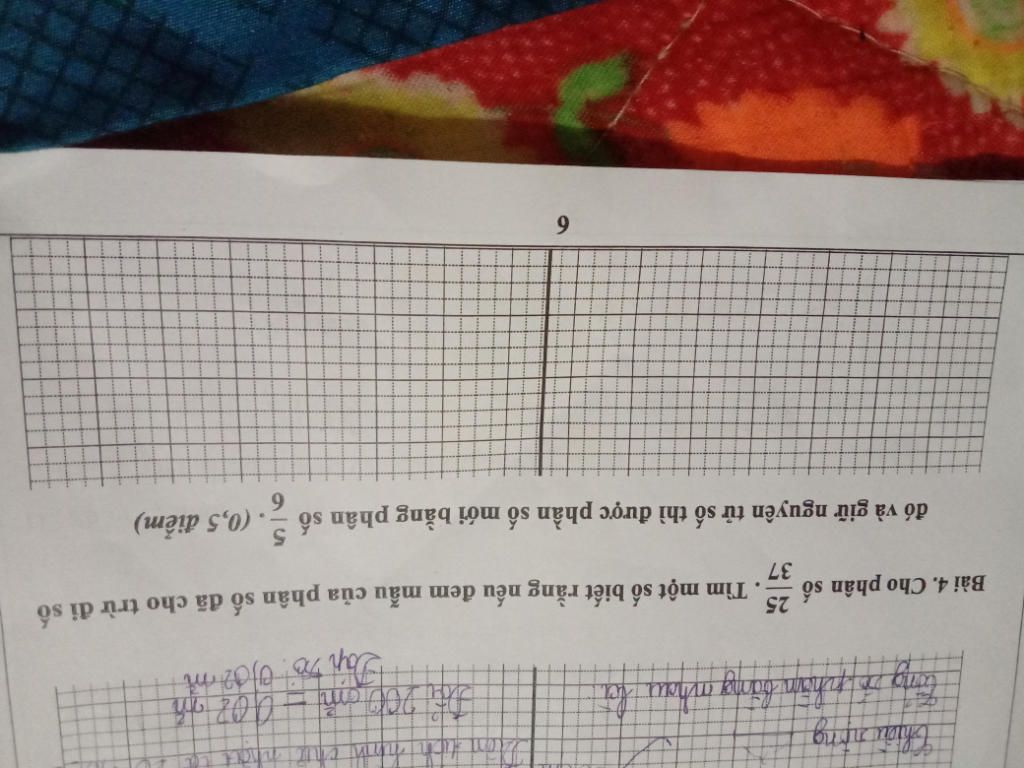 Chiều rộng
Diện tích hình chữ nhật là
tổng số phần bằng nhau là
Đổi 200 cm² = 0,02 m²
Đáp số: 0,02 m²
Bài 4. Cho phân số 25/37. Tìm một số biết rằng nếu đem mẫu của phân số đã cho trừ đi số
đó và giữ nguyên tử số thì được phân số mới bằng phân số 5/6. (0,5 điểm)
6